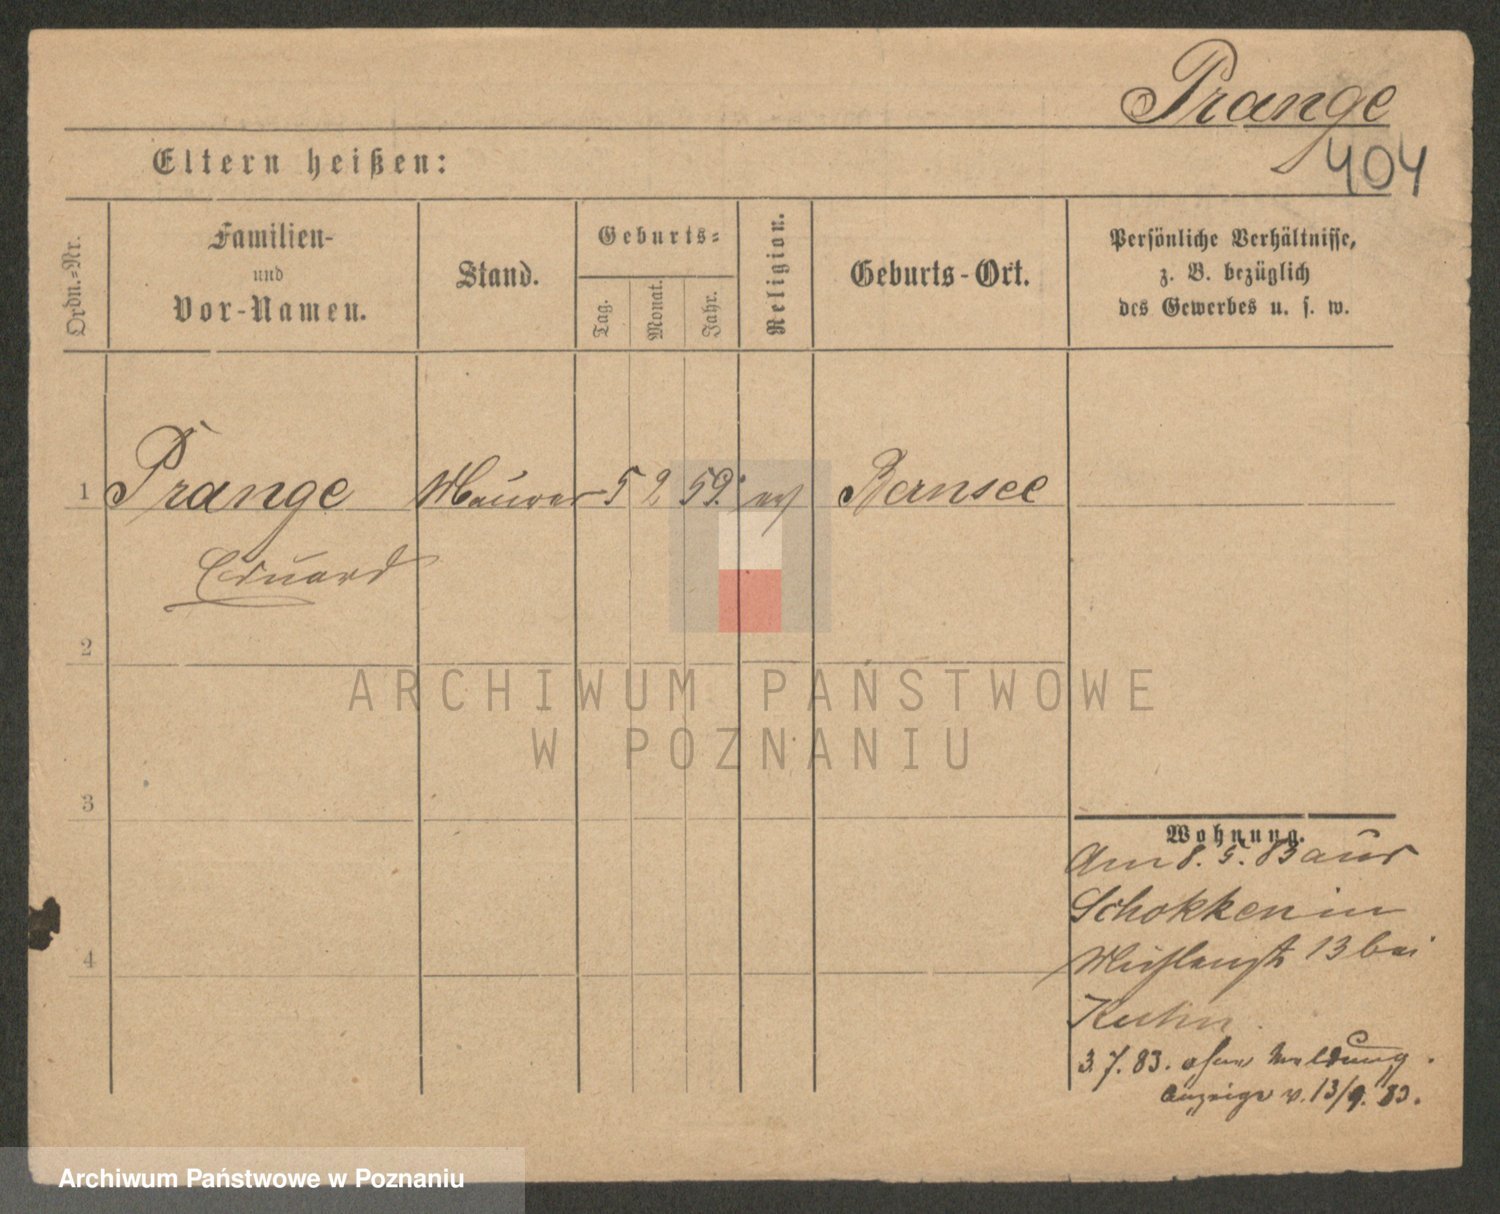 Prange
404
Eltern heißen:
Ordn.-Nr.
Familien-
und
Vor-Namen.
Stand.
Geburts-
Tag.
Monat.
Jahr.
Religion.
Geburts-Ort.
Persönliche Verhältnisse,
z. B. bezüglich
des Gewerbes u. s. w.
1 Prange Maurer 5 2 59. ev Bernsee
Eduard
2
ARCHIWUM PAŃSTWOWE
W POZNANIU
3
Wohnung.
Am 8. 5. 83 aus
Schokken in
13 bei
Kuhn.
3.7.83. ohne Meldung.
Anzeige v. 13/9. 83.
4
Archiwum Państwowe w Poznaniu